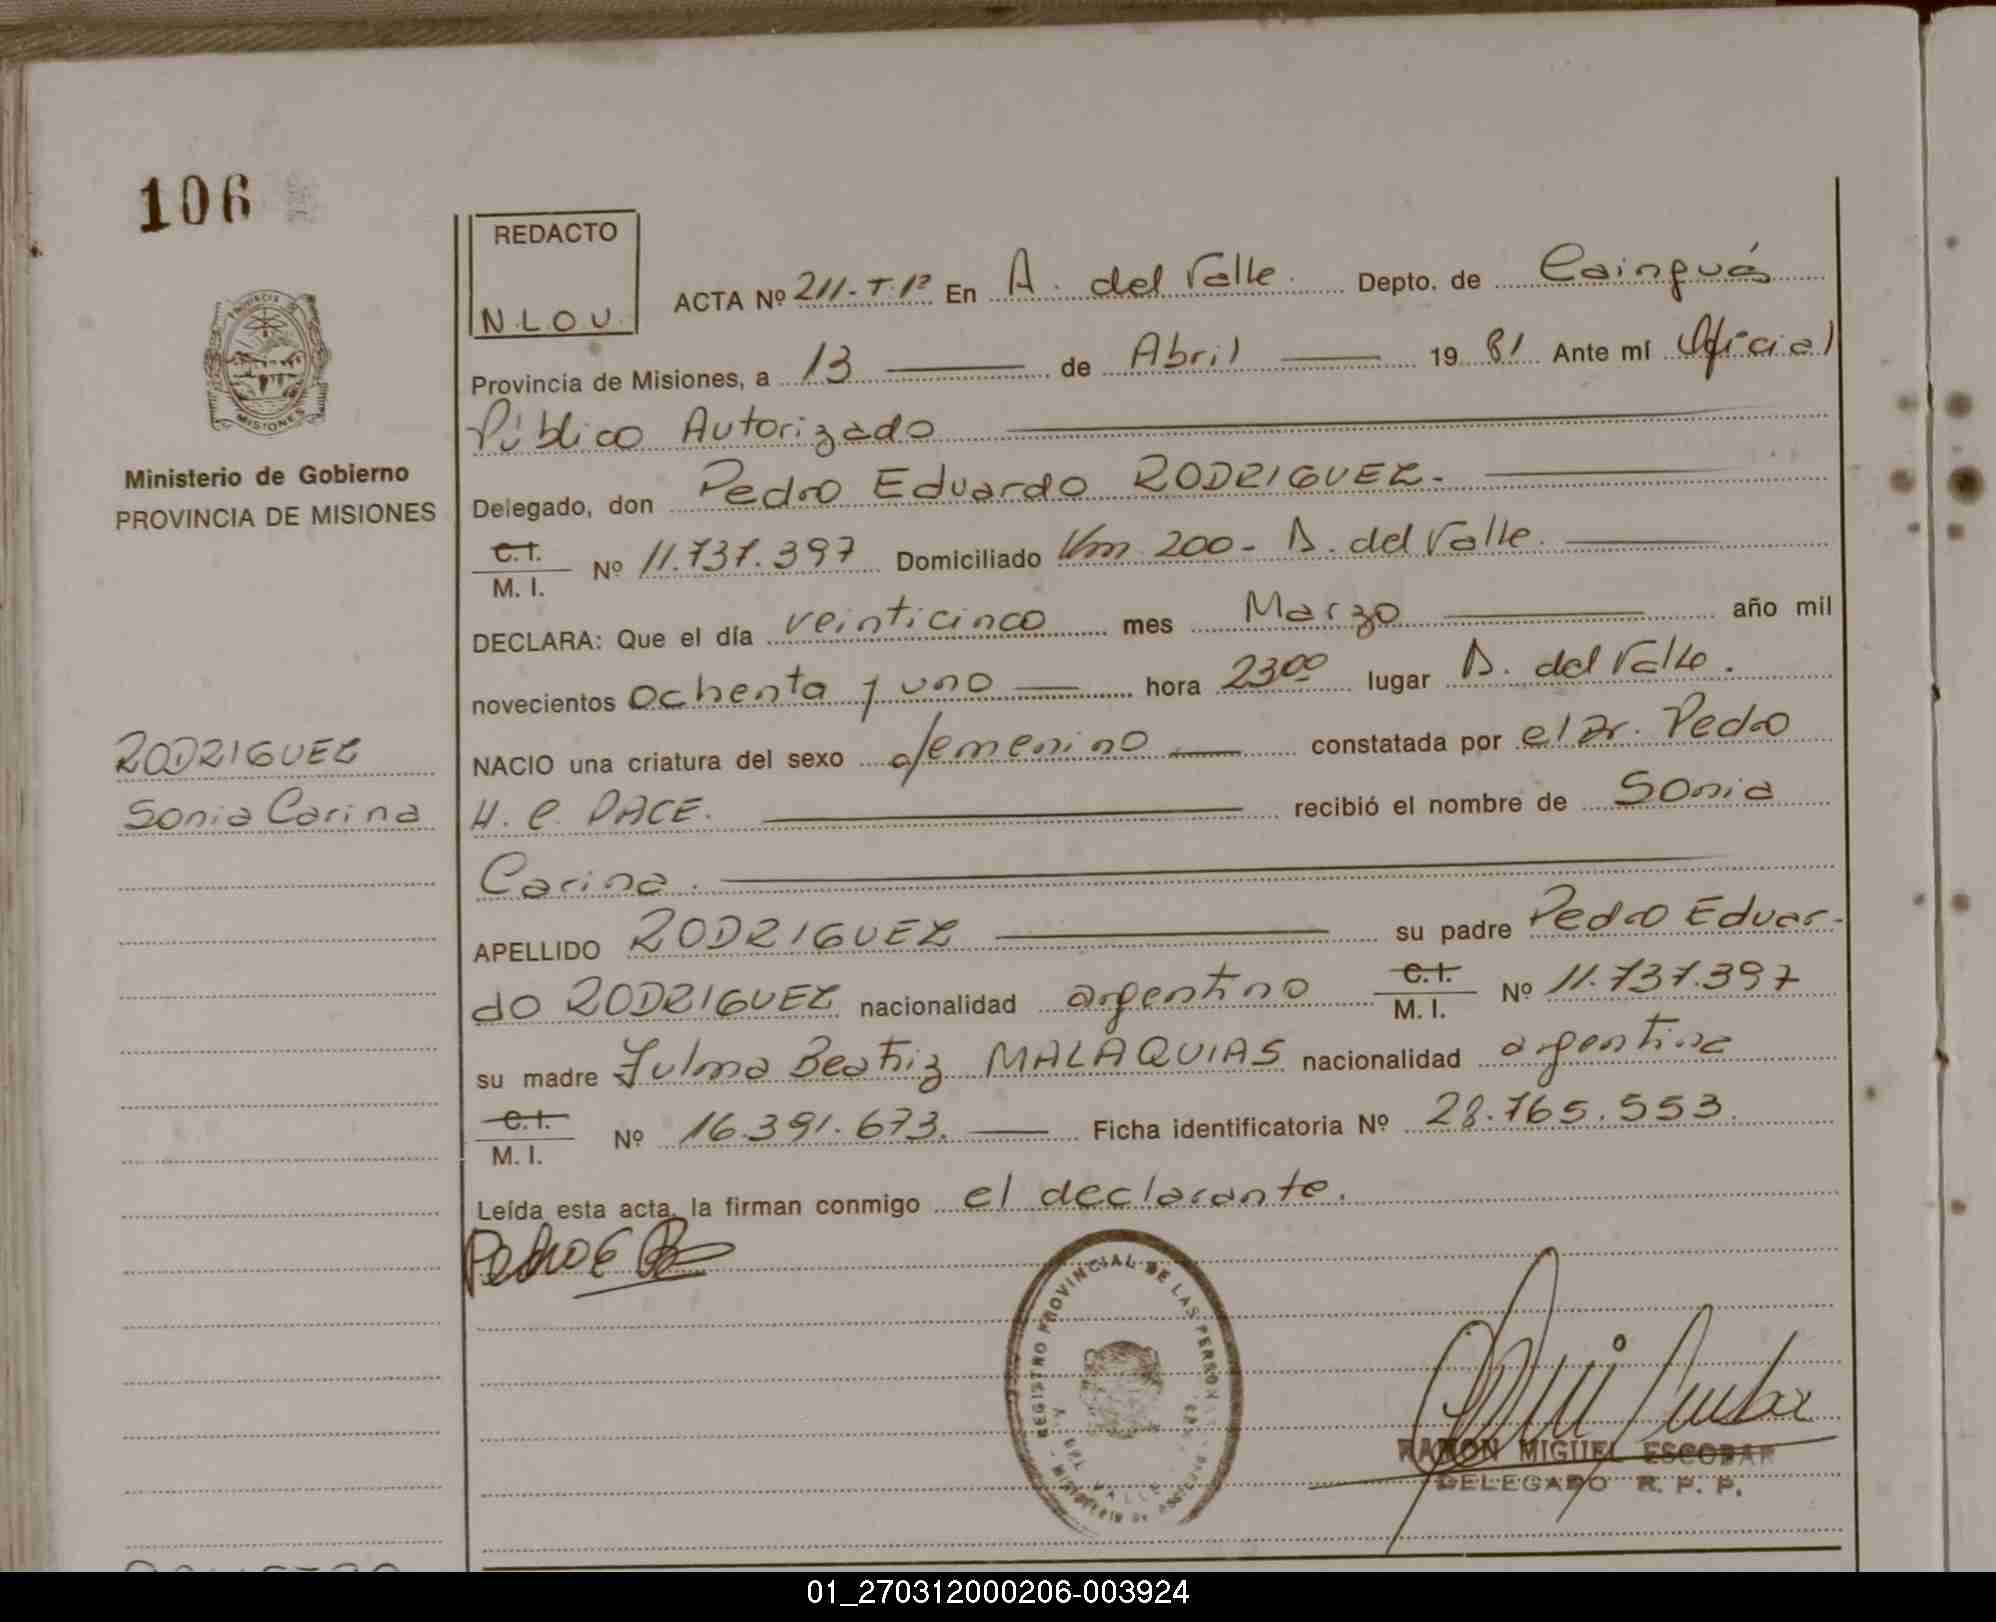 106
REDACTO
N.L.O.U.
ACTA Nº 211-T.1º En A. del Valle. Depto. de Cainguás
Provincia de Misiones, a 13 de Abril 19 81 Ante mí Oficial
Público Autorizado
Delegado, don Pedro Eduardo RODRIGUEZ.-
C.I.
M. I. Nº 11.737.397 Domiciliado Km 200 - A. del Valle.
DECLARA: Que el día veinticinco mes Marzo año mil
novecientos ochenta y uno hora 23⁰⁰ lugar A. del Valle.
NACIO una criatura del sexo femenino constatada por el Dr. Pedro
H. C. PACE. recibió el nombre de Sonia
Carina.
APELLIDO RODRIGUEZ su padre Pedro Eduar-
do RODRIGUEZ nacionalidad argentino C.I.
M. I. Nº 11.737.397
su madre Zulma Beatriz MALAQUIAS nacionalidad argentina
C.I.
M. I. Nº 16.391.673. Ficha identificatoria Nº 28.765.553.
Leída esta acta, la firman conmigo el declarante.
Pedro E
PROVINCIA DE
MISIONES
Ministerio de Gobierno
PROVINCIA DE MISIONES
RODRIGUEZ
Sonia Carina
REGISTRO PROVINCIAL DE LAS PERSON
DEL VALLE
RAMON MIGUEL ESCOBAR
DELEGADO R. P. P.
01_270312000206-003924